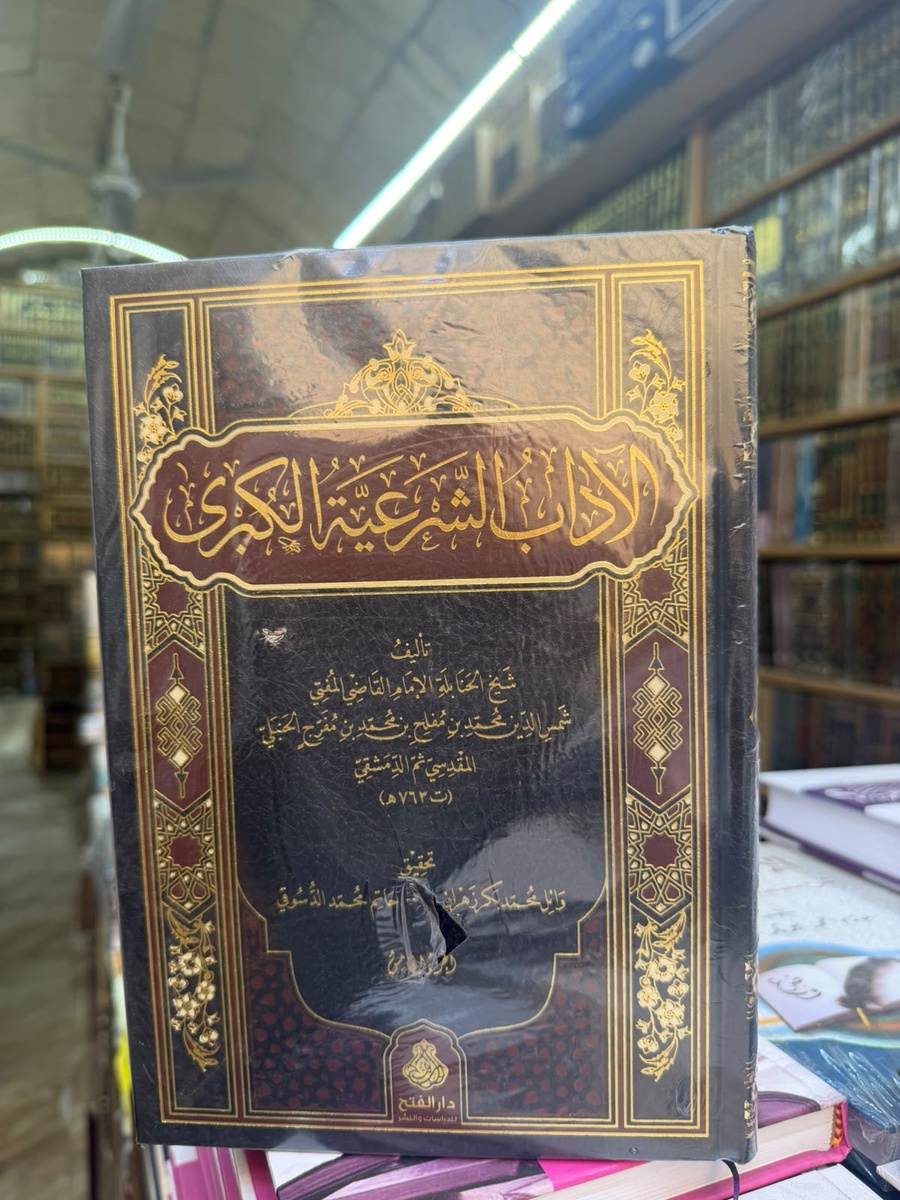 الآدابُ الشَّرعِيَّةُ الكُبرى
تأليفُ
شَيخ الحَنابلة الإمام القَاضي المُفتي
شمس الدِّين محمّد بن مُفلح بن محمّد بن مُفرّج الحَنبليّ
المَقدِسيّ ثمّ الدِّمَشقيّ
(ت ٧٦٣هـ)
تحقيق
وائل محمّد بكر زهران حاتم محمّد الدُّسُوقي
دار الفتح
للدراسات والنشر